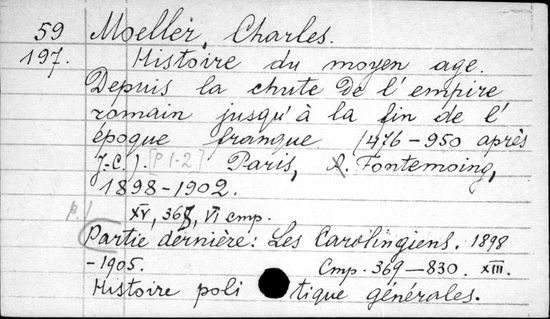 59 Moeller, Charles.
197. Histoire du moyen age.
Depuis la chute de l'empire
romain jusqu'à la fin de l'
époque franque (476-950 après
J.-C.). [P 1-2] Paris, A. Fontemoing,
1898-1902.
p. 1 XV, 368, VI cmp.
Partie dernière: Les Carolingiens. 1898
-1905. Cmp. 369-830. XIII.
Histoire politique générales.